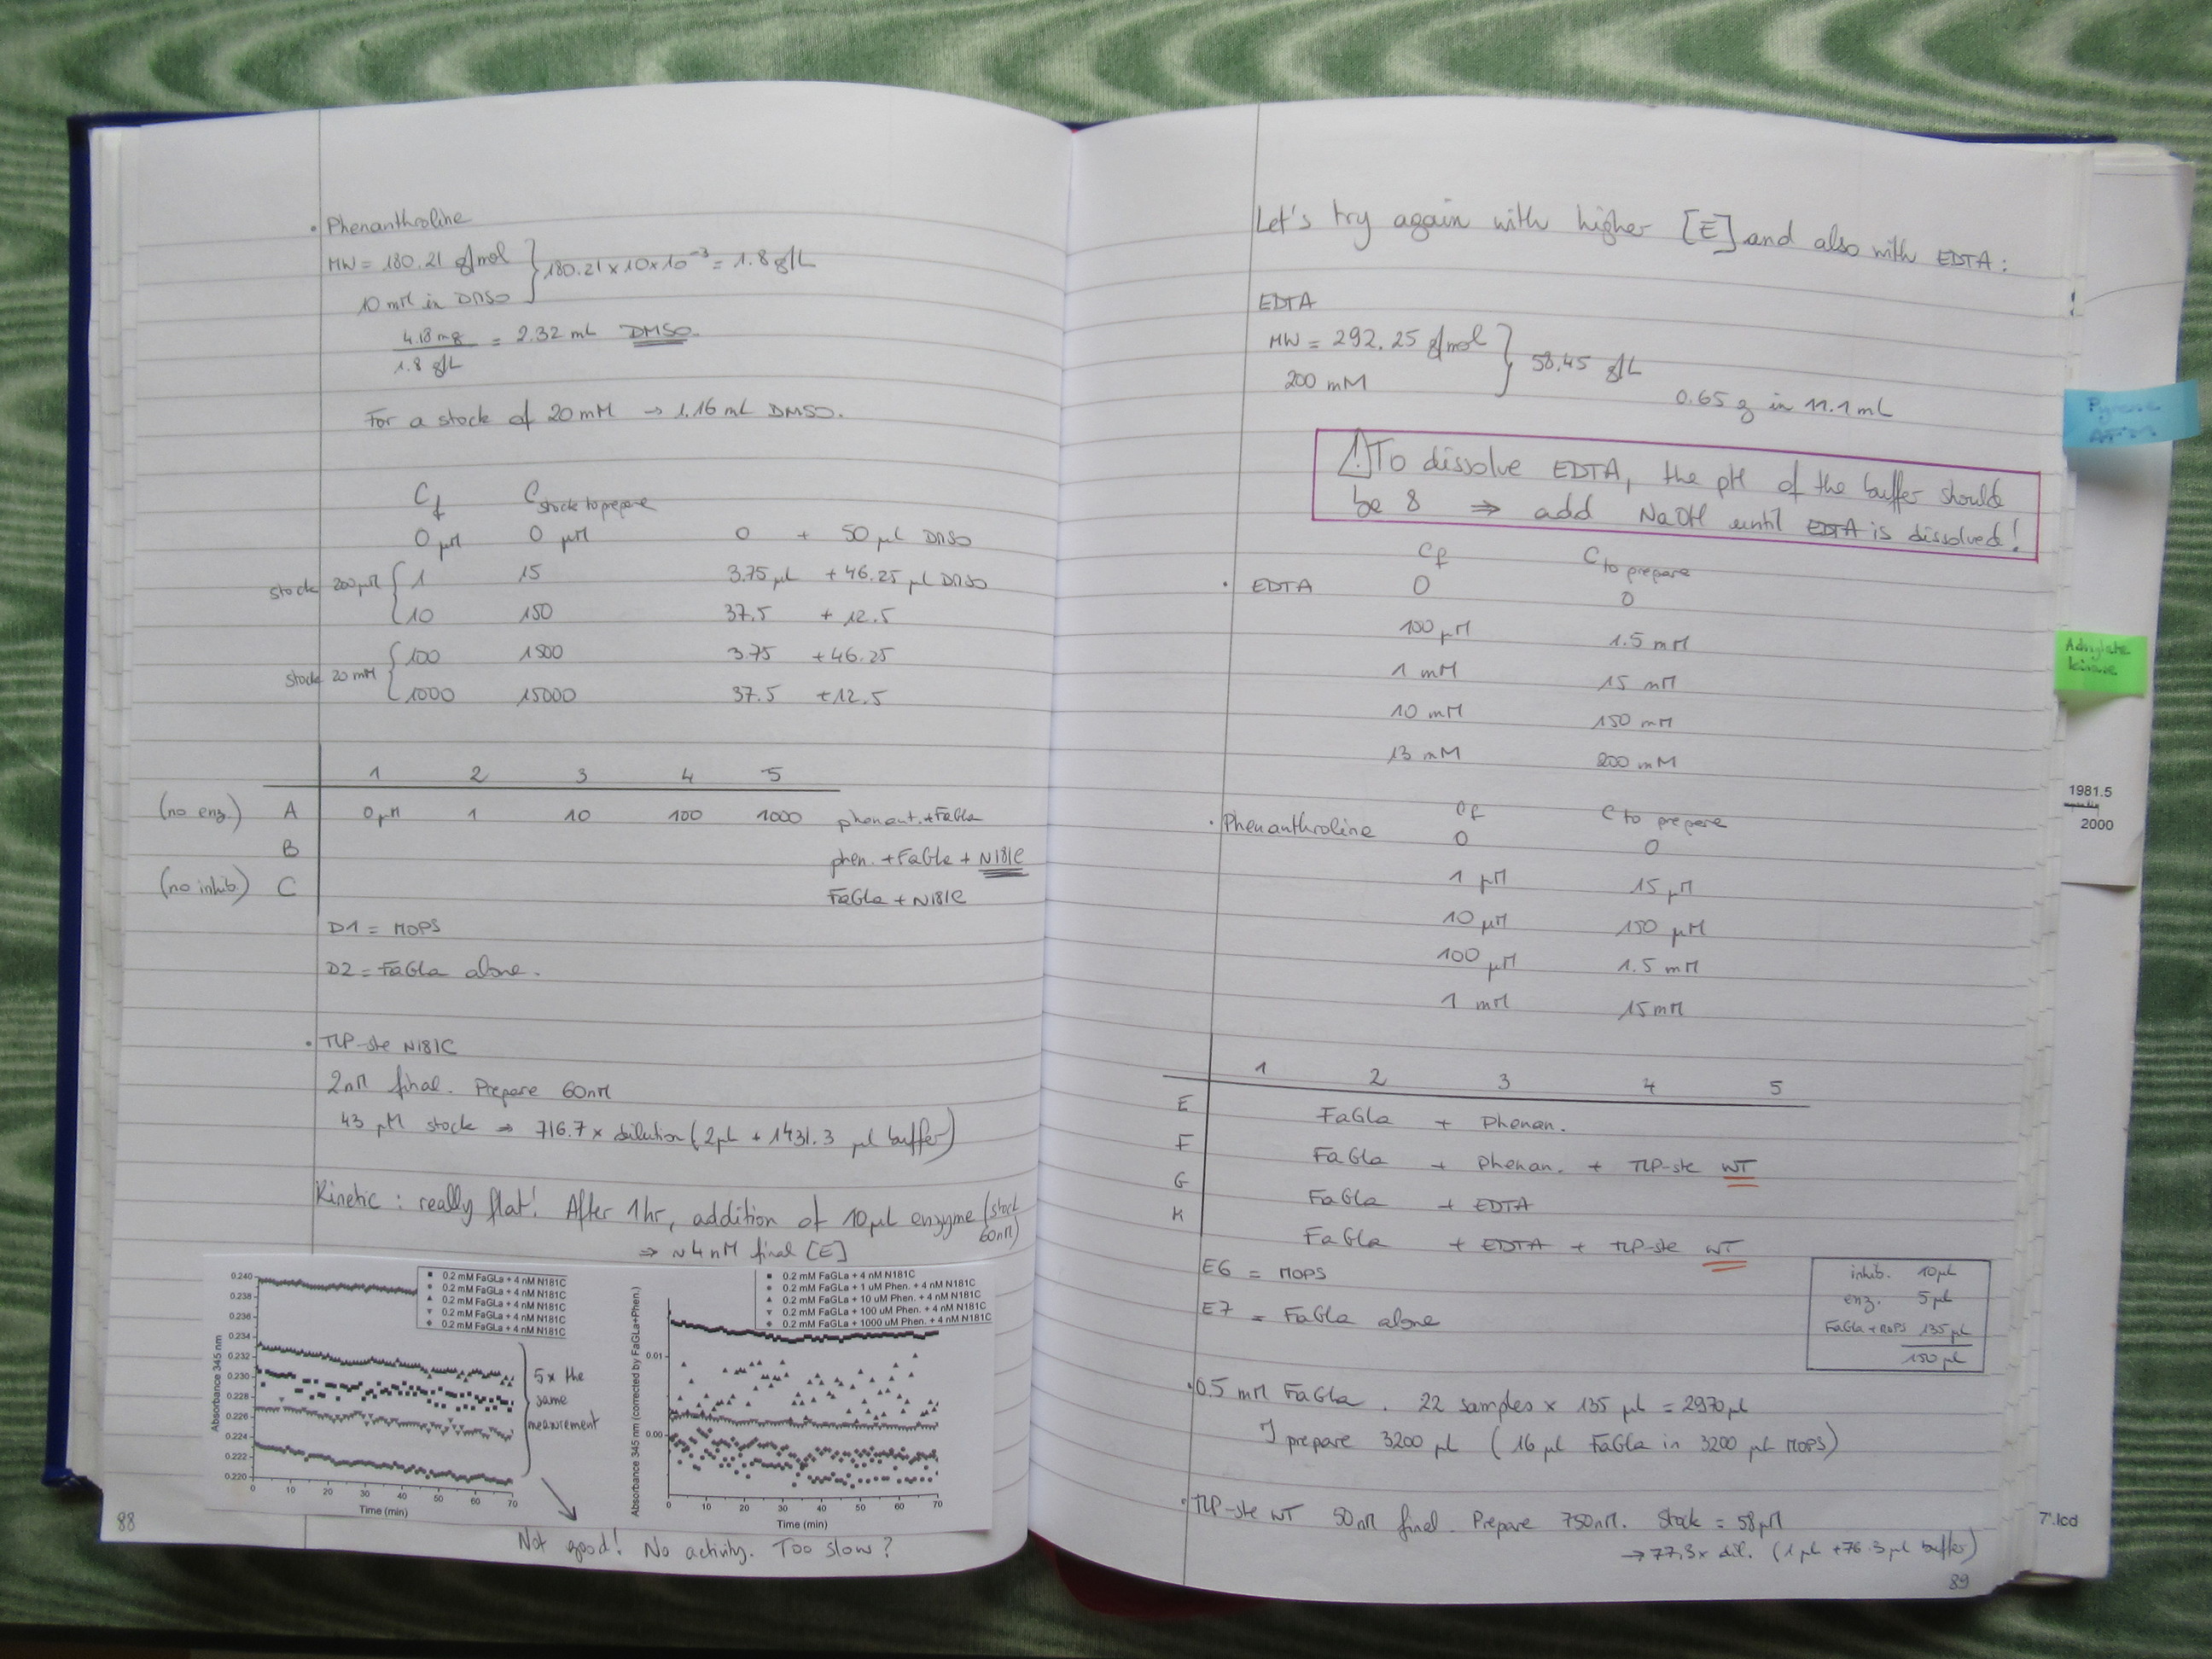 • Phenanthroline
MW = 180.21 g/mol } 180.21 x 10 x 10⁻³ = 1.8 g/L
10 mM in DMSO
4.18 mg / 1.8 g/L = 2.32 mL DMSO.
For a stock of 20 mM → 1.16 mL DMSO.
Cf C stock to prepare
0 µM 0 µM 0 + 50 µL DMSO
stock 200 µM { 1 15 3.75 µL + 46.25 µL DMSO
10 150 37.5 + 12.5
stock 20 mM { 100 1500 3.75 + 46.25
1000 15000 37.5 + 12.5
1 2 3 4 5
(no enz.) A 0 µM 1 10 100 1000 phenant. + FaGla
B phen. + FaGla + N181C
(no inhib.) C FaGla + N181C
D1 = MOPS
D2 = FaGla alone.
• TLP-ste N181C
2 nM final. Prepare 60 nM
43 µM stock ⇒ 716.7 x dilution (2 µL + 1431.3 µL buffer)
Kinetic : really flat! After 1 hr, addition of 10 µL enzyme (stock 60 nM)
⇒ ~ 4 nM final [E]
0.2 mM FaGLa + 4 nM N181C
0.2 mM FaGLa + 4 nM N181C
0.2 mM FaGLa + 4 nM N181C
0.2 mM FaGLa + 4 nM N181C
0.2 mM FaGLa + 4 nM N181C
Absorbance 345 nm
0.240
0.238
0.236
0.234
0.232
0.230
0.228
0.226
0.224
0.222
0.220
0 10 20 30 40 50 60 70
Time (min)
5x the
same
measurement
0.2 mM FaGLa + 4 nM N181C
0.2 mM FaGLa + 1 uM Phen. + 4 nM N181C
0.2 mM FaGLa + 10 uM Phen. + 4 nM N181C
0.2 mM FaGLa + 100 uM Phen. + 4 nM N181C
0.2 mM FaGLa + 1000 uM Phen. + 4 nM N181C
Absorbance 345 nm (corrected by FaGLa+Phen.)
0.01
0.00
0 10 20 30 40 50 60 70
Time (min)
Not good! No activity. Too slow?
88
Let's try again with higher [E] and also with EDTA :
EDTA
MW = 292.25 g/mol } 58.45 g/L
200 mM
0.65 g in 11.1 mL
⚠ To dissolve EDTA, the pH of the buffer should
be 8 ⇒ add NaOH until EDTA is dissolved!
Cf C to prepare
• EDTA 0 0
100 µM 1.5 mM
1 mM 15 mM
10 mM 150 mM
13 mM 200 mM
Cf C to prepare
• Phenanthroline 0 0
1 µM 15 µM
10 µM 150 µM
100 µM 1.5 mM
1 mM 15 mM
1 2 3 4 5
E FaGla + Phenan.
F FaGla + Phenan. + TLP-ste WT
G FaGla + EDTA
H FaGla + EDTA + TLP-ste WT
E6 = MOPS
E7 = FaGla alone
inhib. 10 µL
enz. 5 µL
FaGla + MOPS 135 µL
150 µL
• 0.5 mM FaGla . 22 samples x 135 µL = 2970 µL
I prepare 3200 µL (16 µL FaGla in 3200 µL MOPS)
• TLP-ste WT 50 nM final. Prepare 750 nM. Stock = 58 µM
→ 77.3 x dil. (1 µL + 76.3 µL buffer)
89
Adenylate
kinase
1981.5
2000
7'.lcd